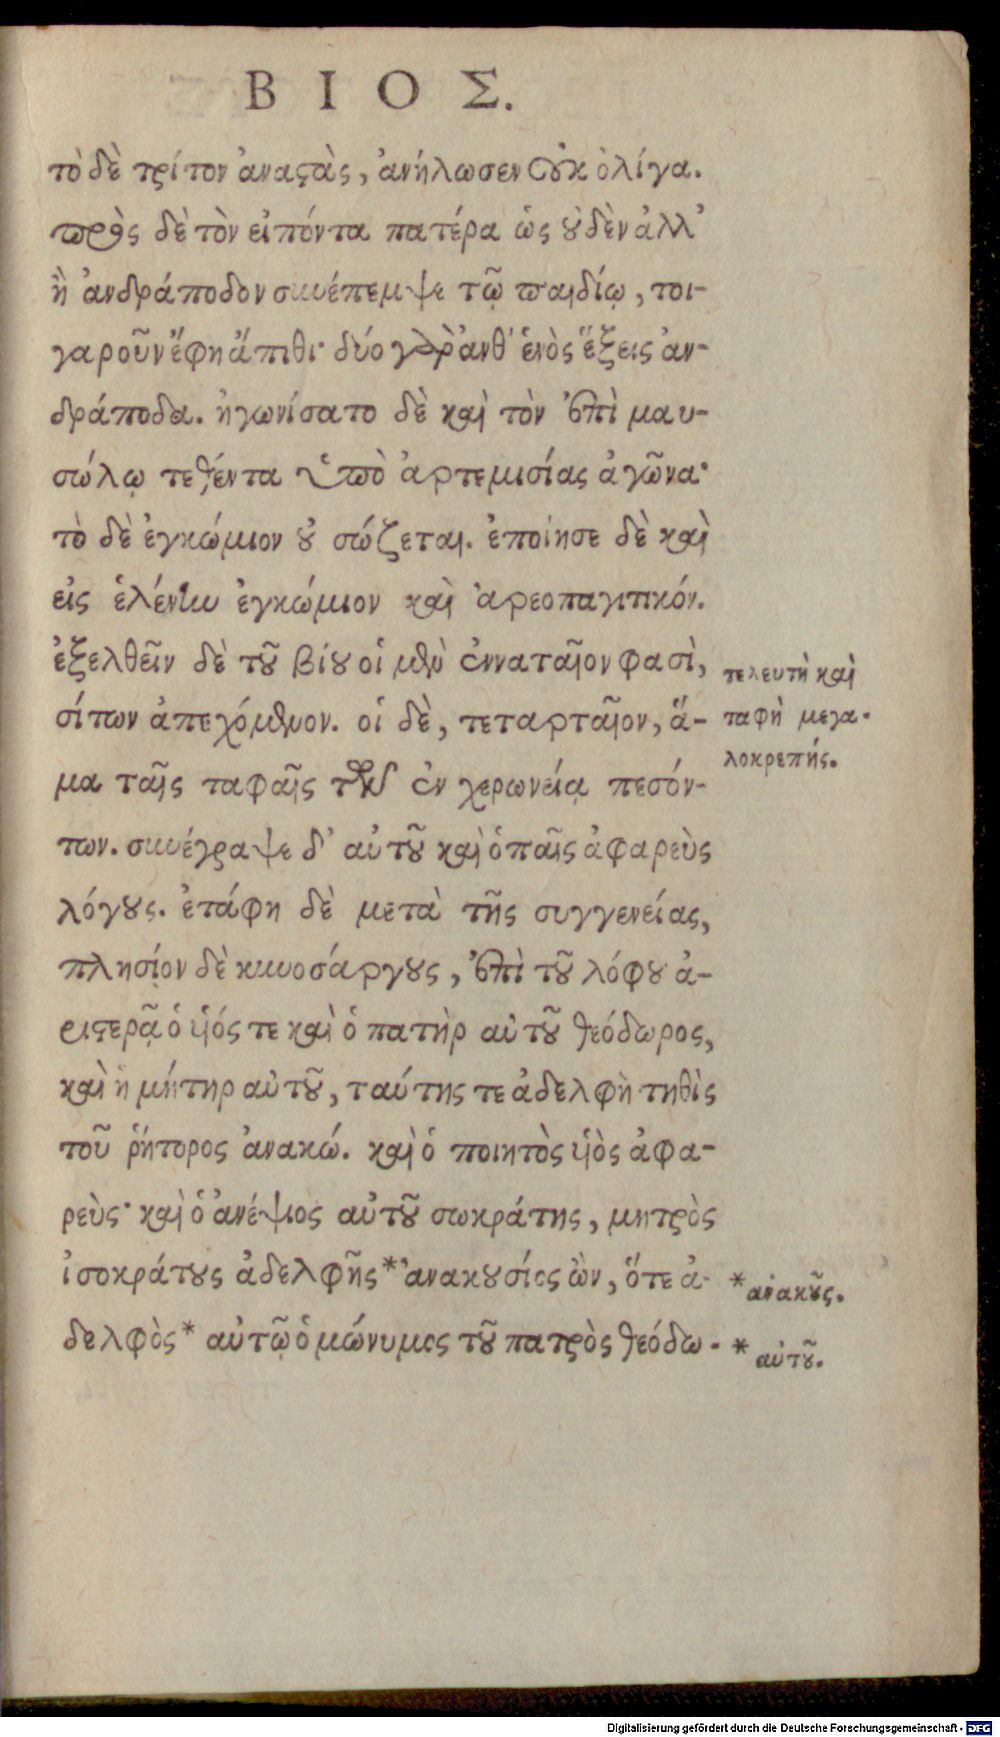 ΒΙΟΣ.
τὸ δὲ τρίτον ἀναστὰς, ἀνήλωσεν οὐκ ὀλίγα.
πρὸς δὲ τὸν εἰπόντα πατέρα ὡς οὐδὲν ἀλλ’
ἢ ἀνδράποδον συνέπεμψε τῷ παιδίῳ, τοι-
γαροῦν ἔφη ἄπιθι· δύο γὰρ ἀνθ’ ἑνὸς ἕξεις ἀν-
δράποδα. ἠγωνίσατο δὲ καὶ τὸν ἐπὶ μαυ-
σώλῳ τεθέντα ὑπὸ ἀρτεμισίας ἀγῶνα·
τὸ δὲ ἐγκώμιον οὐ σώζεται. ἐποίησε δὲ καὶ
εἰς ἑλένην ἐγκώμιον καὶ ἀρεοπαγιτικόν.
ἐξελθεῖν δὲ τοῦ βίου οἱ μὲν ἐνναταῖον φασὶ,
σίτων ἀπεχόμενον. οἱ δὲ, τεταρταῖον, ἅ-
μα ταῖς ταφαῖς τῶν ἐν χερωνείᾳ πεσόν-
των. συνέγραψε δ’ αὐτοῦ καὶ ὁ παῖς ἀφαρεὺς
λόγους. ἐτάφη δὲ μετὰ τῆς συγγενείας,
πλησίον δὲ κυνοσάργους, ἐπὶ τοῦ λόφου ἀ-
ριστερᾷ ὁ υἱός τε καὶ ὁ πατὴρ αὐτοῦ θεόδωρος,
καὶ ἡ μήτηρ αὐτοῦ, ταύτης τε ἀδελφὴ τηθὶς
τοῦ ῥήτορος ἀνακώ. καὶ ὁ ποιητὸς υἱὸς ἀφα-
ρεὺς· καὶ ὁ ἀνέψιος αὐτοῦ σωκράτης, μητρὸς
ἰσοκράτους ἀδελφῆς * ἀνακουσίος ὢν, ὅτε ἀ-
δελφὸς * αὐτῷ ὁμώνυμος τοῦ πατρὸς θεόδω-
τελευτὴ καὶ
ταφὴ μεγα-
λοκρεπής.
* ἀνακοῦς.
* αὐτοῦ.
Digitalisierung gefördert durch die Deutsche Forschungsgemeinschaft - DFG